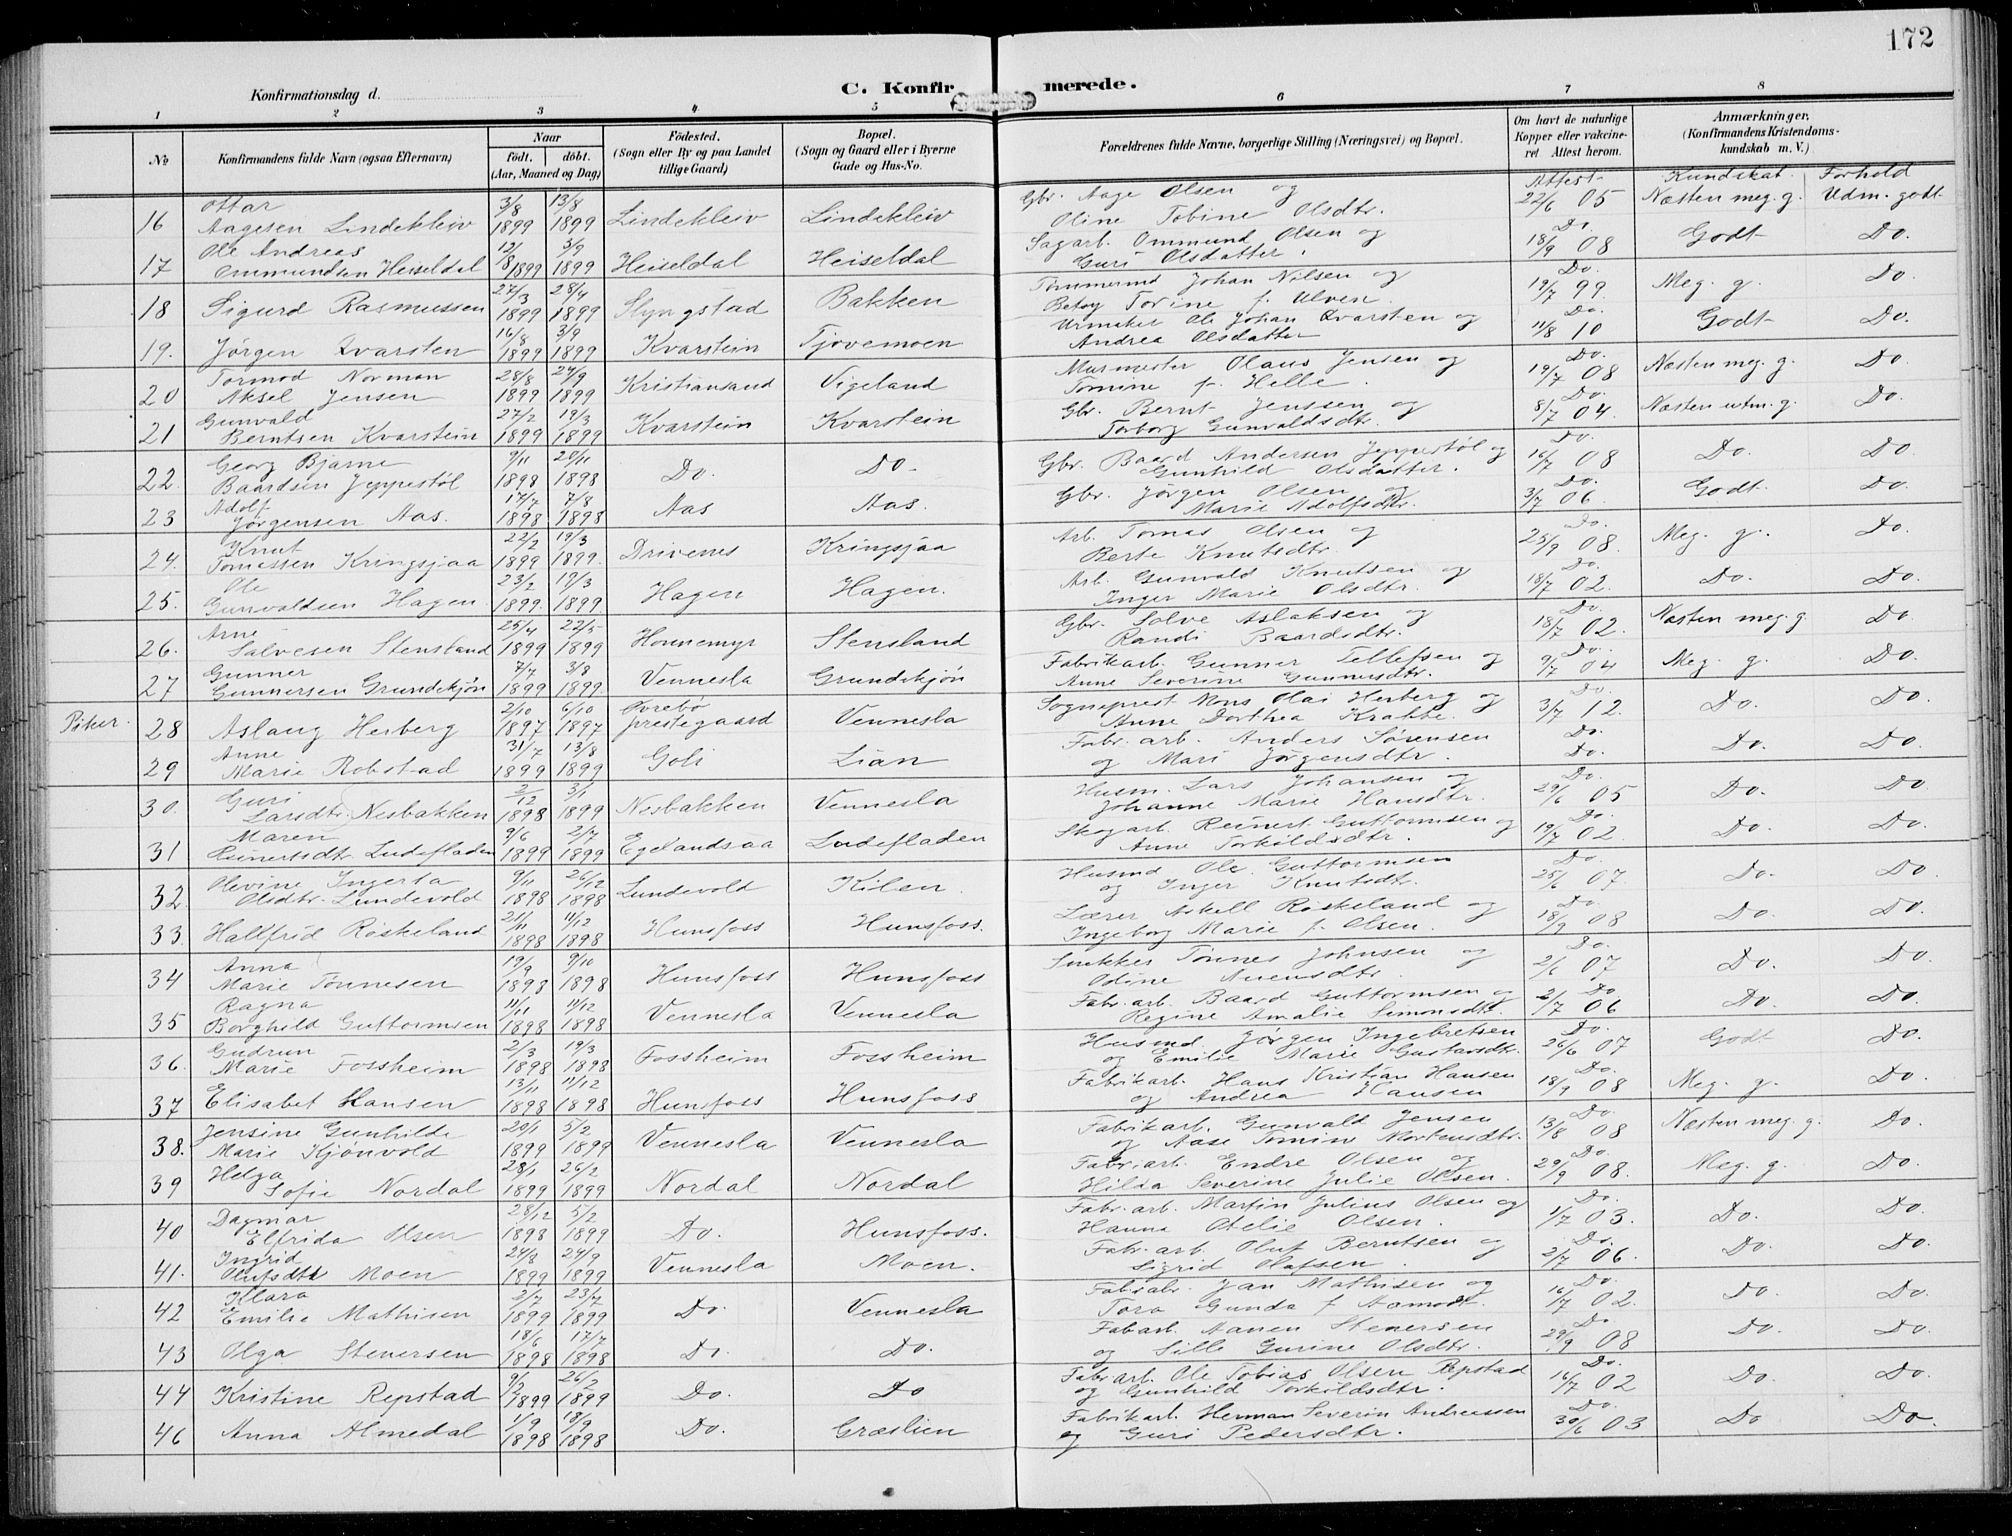 172
Konfirmationsdag d.
C. Konfirmerede.
1 2 3 4 5 6 7 8
No
Konfirmandens fulde Navn (ogsaa Efternavn)
Naar
født. døbt.
(Aar, Maaned og Dag)
Fødested.
(Sogn eller By og paa Landet
tillige Gaard)
Bopæl.
(Sogn og Gaard eller i Byerne
Gade og Hus-No.
Forældrenes fulde Navne, borgerlige Stilling (Næringsvei) og Bopæl.
Om havt de naturlige
Kopper eller vakcine-
ret Attest herom.
Anmærkninger,
(Konfirmandens Kristendoms-
kundskab m. V.)
Attest Kundskab. Forhold
16 Ottar Aagesen Lindekleiv 3/8 1899 13/8 1899 Lindekleiv Lindekleiv Gbr. Aage Olsen og Oline Tobine Olsdtr. 22/6 05 Næsten meg. g. Udm. godt
17 Ole Andreas Ommundsen Heiseldal 12/8 1899 3/9 1899 Heiseldal Heiseldal Sagarb. Ommund Olsen og Guri Olsdatter. Do. 18/9 08 Godt Do.
18 Sigurd Rasmussen 27/3 1899 28/4 1899 Slyngstad Bakken Tømmermd Johan Nilsen og Betsy Torine f. Ulven. Do. 19/7 99 Meg. g. Do.
19. Jørgen Kvarsten 16/8 1899 3/9 1899 Kvarstein Tjovemoen Urmaker Ole Johan Kvarsten og Andrea Olsdatter Do. 11/8 10 Godt Do.
20 Tormod Norman Aksel Jensen 28/8 1899 24/9 1899 Kristiansand Vigeland Murmester Olaus Jensen og Tomine f. Helle. Do. 19/7 08 Næsten meg. g. Do
21 Gunvald Berntsen Kvarstein 27/2 1899 19/3 1899 Kvarstein Kvarstein Gbr. Bernt Jenssen og Torborg Gunvaldsdtr. Do. 8/7 04. Næsten utm. g. Do.
22. Georg Bjarne Baardsen Jeppestøl 9/11 1898 20/11 1898 Do. Do. Gbr. Baard Andersen Jeppestøl og Gunhild Olsdatter. Do. 16/7 08 Do. Do.
23 Adolf Jørgensen Aas. 17/7 1898 7/8 1898 Aas Aas. Gbr. Jørgen Olsen og Marie Adolfsdtr. Do. 3/7 06. Godt. Do.
24. Knut Tomessen Kringsjaa 22/2 1899 19/3 1899. Drivenes Kringsjaa Arb. Tomas Olsen og Berte Knutsdtr. Do. 25/9 08. Meg. g. Do.
25. Ole Gunvaldsen Hagen. 23/2 1899. 19/3 1899 Hagen Hagen. Arb. Gunvald Knutsen og Inger Marie Olsdtr. Do. 18/7 02. Do. Do.
26. Arne Salvesen Stensland 25/4 1899 22/5 1899 Honnemyr Stensland Gbr. Salve Aslaksen og Randi Baardsdtr. Do. 18/7 02. Næsten meg. g. Do.
27 Gunner Gunnersen Grundekjøn 7/7 1899 3/8 1899. Vennesla Grundekjøn Fabrikarb. Gunner Tellefsen og Anne Severine Gunnersdtr. Do. 9/7 04 Meg. g. Do.
Piker.
28 Aslaug Herberg 2/10 1897 6/10 1897 Øvrebø prestegaard Vennesla Sogneprest Mons Olai Herberg og Anne Dorthea Krabbe. Do. 3/7 12. Do. Do.
29 Anne Marie Robstad 31/7 1899 13/8 1899 Goli Lian Fabr. arb. Anders Sørensen og Mari Jørgensdtr. Do. Do. Do. Do.
30. Guri Larsdtr. Nesbakken 2/12 1898 3/1 1899 Nesbakken Vennesla Husm. Lars Johansen og Johanne Marie Hansdtr. Do. 29/6 05 Do. Do.
31 Maren Reinertsdtr. Ludefladen 9/6 1899 2/7 1899 Egelandsaa Ludefladen Skogarb. Reinert Guttormsen og Anne Torkildsdtr. Do. 19/7 02. Do. Do.
32. Olevine Ingerta Olsdtr. Lundevold 9/11 1898 26/12 1898 Lundevold Kilen. Husmd Ole Guttormsen og Inger Knutsdtr. Do. 25/6 07. Do. Do.
33. Hallfrid Røskeland 21/11 1898 11/12 1898 Hunsfoss Hunsfoss. Lærer Askell Røskeland og Ingeborg Marie f. Olsen. Do. 18/9 08 Do. Do.
34 Anna Marie Tønnesen 19/9 1898 9/10 1898 Hunsfoss Hunsfoss Snekker Tønnes Johnsen og Odine Auensdtr. Do. 2/6 07 Do. Do.
35 Ragna Borghild Guttormsen 11/11 1898 11/12 1898 Vennesla Vennesla Fabr. arb. Baard Guttormsen og Regine Amalie Simonsdtr. Do. 2/7 06 Do. Do.
36. Gudrun Marie Fossheim 2/3 1898 19/3 1898 Fossheim Fossheim Husmd. Jørgen Ingebretsen og Emilie Marie Gustavsdtr. Do. 26/6 07 Godt Do.
37 Elisabet Hansen 13/11 1898 11/12 1898 Hunsfoss Hunsfoss Fabrikarb. Hans Kristian Hansen og Andrea Hansen Do. 18/9 08 Meg. g. Do.
38. Jensine Gunhilde Marie Kjønvold 20/1 1899 5/2 1899 Vennesla Vennesla Fabrikarb. Gunvald Jensen og Aase Tomine Mortensdtr. Do. 13/8 08 Næsten meg. g. Do.
39 Helga Sofie Nordal 28/1 1899 26/2 1899 Nordal Nordal Fabr. arb. Endre Olsen og Hilda Severine Julie Olsen. Do. 29/9 08. Meg. g. Do.
40 Dagmar Elfrida Olsen 28/12 1898 5/2 1899 Do. Hunsfoss. Fabr. arb. Martin Julius Olsen og Hanna Otelie Olsen. Do. 1/7 03. Do. Do.
41. Ingrid Olufsdtr Moen 24/8 1899 24/9 1899 Vennesla Moen. Fabr. arb. Oluf Berntsen og Sigrid Olafsen. Do. 2/7 06. Do. Do.
42 Klara Emilie Mathisen 2/7 1899 23/7 1899 Do. Vennesla Fabr. arb. Jan Mathisen og Tora Gunda f. Aamodt. Do. 16/7 02. Do. Do.
43 Olga Stenersen 18/6 1898 17/7 1898 Do. Do. Fabarb. Aanen Stenersen og Silli Gurine Olsdtr. Do 29/9 08 Do. Do.
44 Kristine Repstad 9/2 1899 26/2 1899 Do. Do Fabr. arb. Ole Tobias Olsen Repstad og Gunhild Torkildsdtr. Do. 16/7 02 Do. Do.
46 Anna Almedal 1/9 1898 18/9 1898 Do. Græslien Fabrikarb. Herman Severin Andreassen og Guri Pedersdtr. Do. 30/6 03 Do Do.